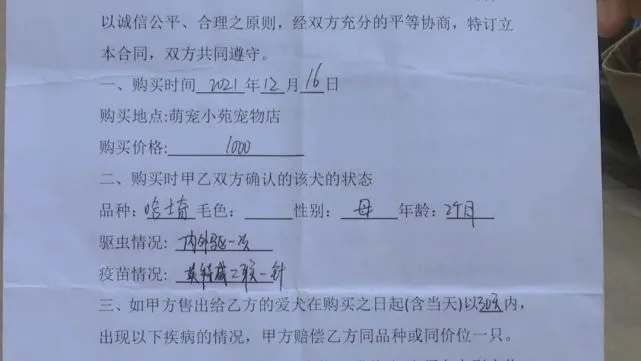 以诚信公平、合理之原则，经双方充分的平等协商，特订立
本合同，双方共同遵守。
一、购买时间 2021 年 12 月 16 日
购买地点:萌宠小苑宠物店
购买价格: 1000
二、购买时甲乙双方确认的该犬的状态
品种: 哈士奇 毛色: 性别: 母 年龄: 2个月
驱虫情况: 内外驱一次
疫苗情况: 英特威二联一针
三、如甲方售出给乙方的爱犬在购买之日起(含当天)以30天内，
出现以下疾病的情况，甲方赔偿乙方同品种或同价位一只。